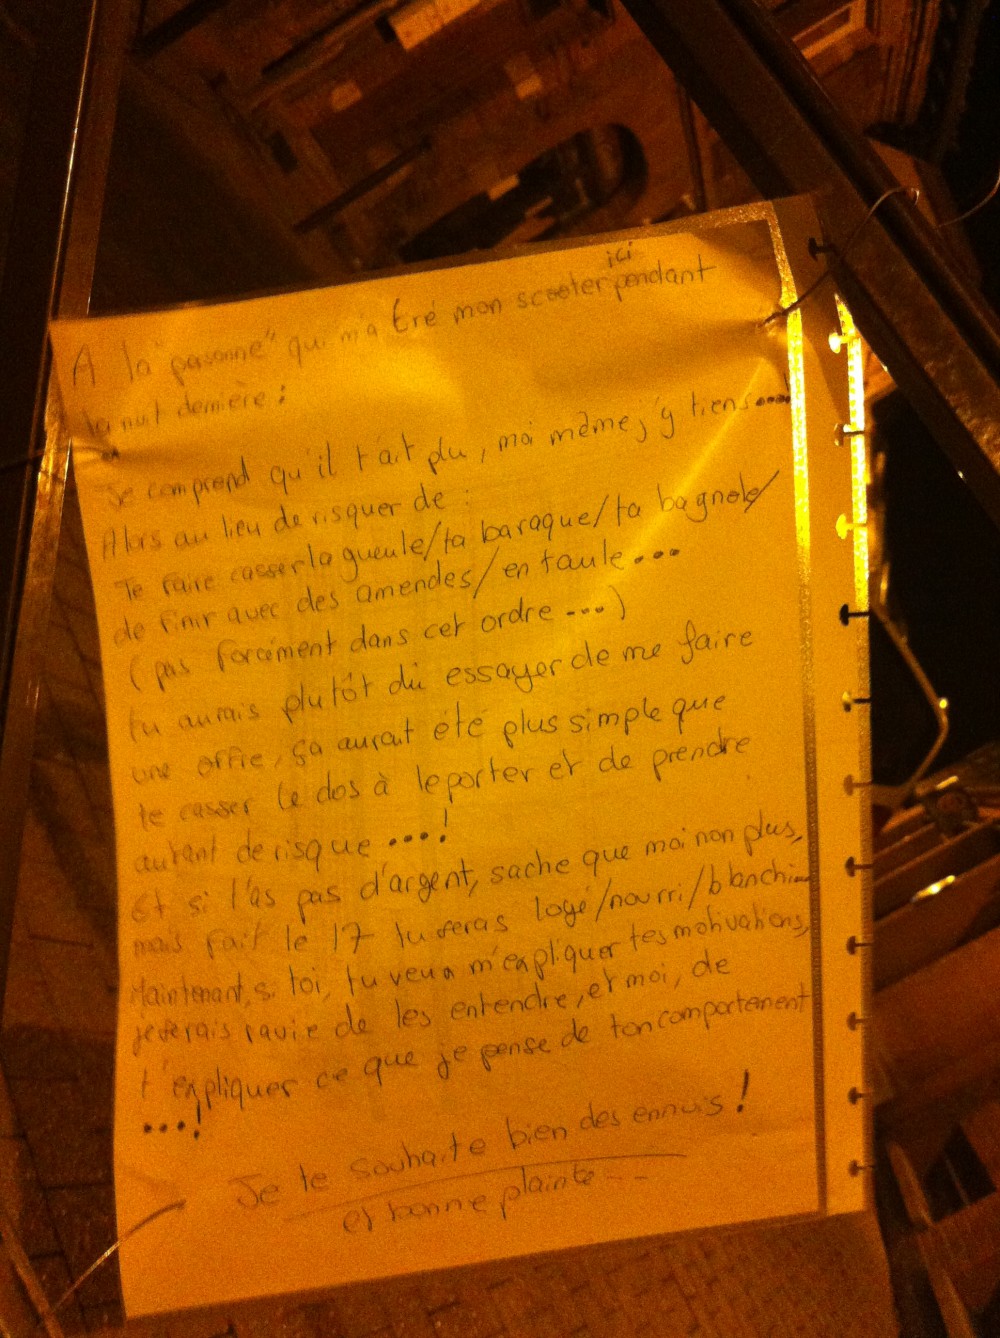 ici
A la "pasonne" qui m'a tiré mon scooter pendant
la nuit dernière :
Je comprend qu'il t'ait plu, moi même j'y tiens....
Alors au lieu de risquer de :
Te faire casser la gueule/ta baraque/ta bagnole/
de finir avec des amendes/en taule...
(pas forcément dans cet ordre ...)
tu aurais plutôt dû essayer de me faire
une offre, ça aurait été plus simple que
te casser le dos à le porter et de prendre
autant de risque ....!
Et si t'as pas d'argent, sache que moi non plus,
mais fait le 17 tu seras logé/nourri/blanchi...
Maintenant, si toi, tu veux m'expliquer tes motivations,
je serais ravie de les entendre, et moi, de
t'expliquer ce que je pense de ton comportement
...!
Je te souhaite bien des ennuis !
et bonne plainte...